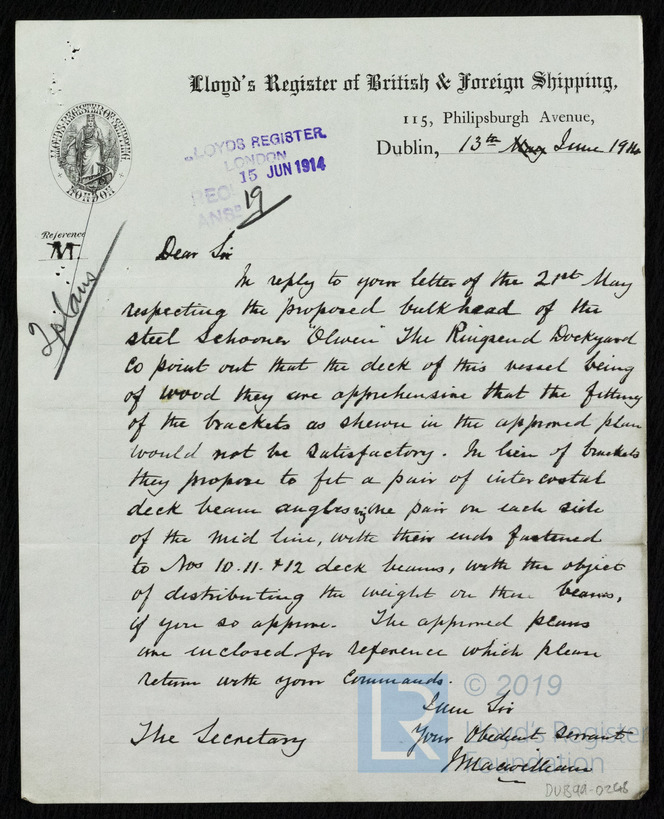 Lloyd's Register of British & Foreign Shipping,
115, Philipsburgh Avenue,
Dublin, 13th May June 1914
LLOYD'S REGISTER OF SHIPPING
LONDON
LLOYDS REGISTER.
LONDON
15 JUN 1914
REC
ANS
19
Reference
M.
2 plans
Dear Sir
In reply to your letter of the 21st May
respecting the proposed bulkhead of the
steel Schooner "Olwen" The Ringsend Dockyard
Co point out that the deck of this vessel being
of wood they are apprehensive that the fitting
of the brackets as shewn in the approved plan
would not be satisfactory. In lieu of brackets
they propose to fit a pair of intercostal
deck beam angles viz one pair on each side
of the mid line, with their ends fastened
to Nos 10. 11. & 12 deck beams, with the object
of distributing the weight on these beams,
if you so approve. The approved plans
are enclosed for reference which please
return with your commands.
I am Sir
The Secretary
Your Obedient Servant
J Macwilliam
© 2019
Lloyd's Register
Foundation
DUB99-0268